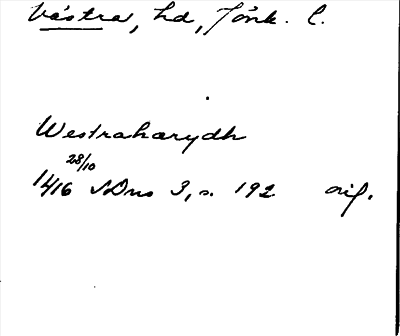 Västra, hd, Jönk. l.
Westraharydh
28/10
1416 SDns 3, s. 192 orig.